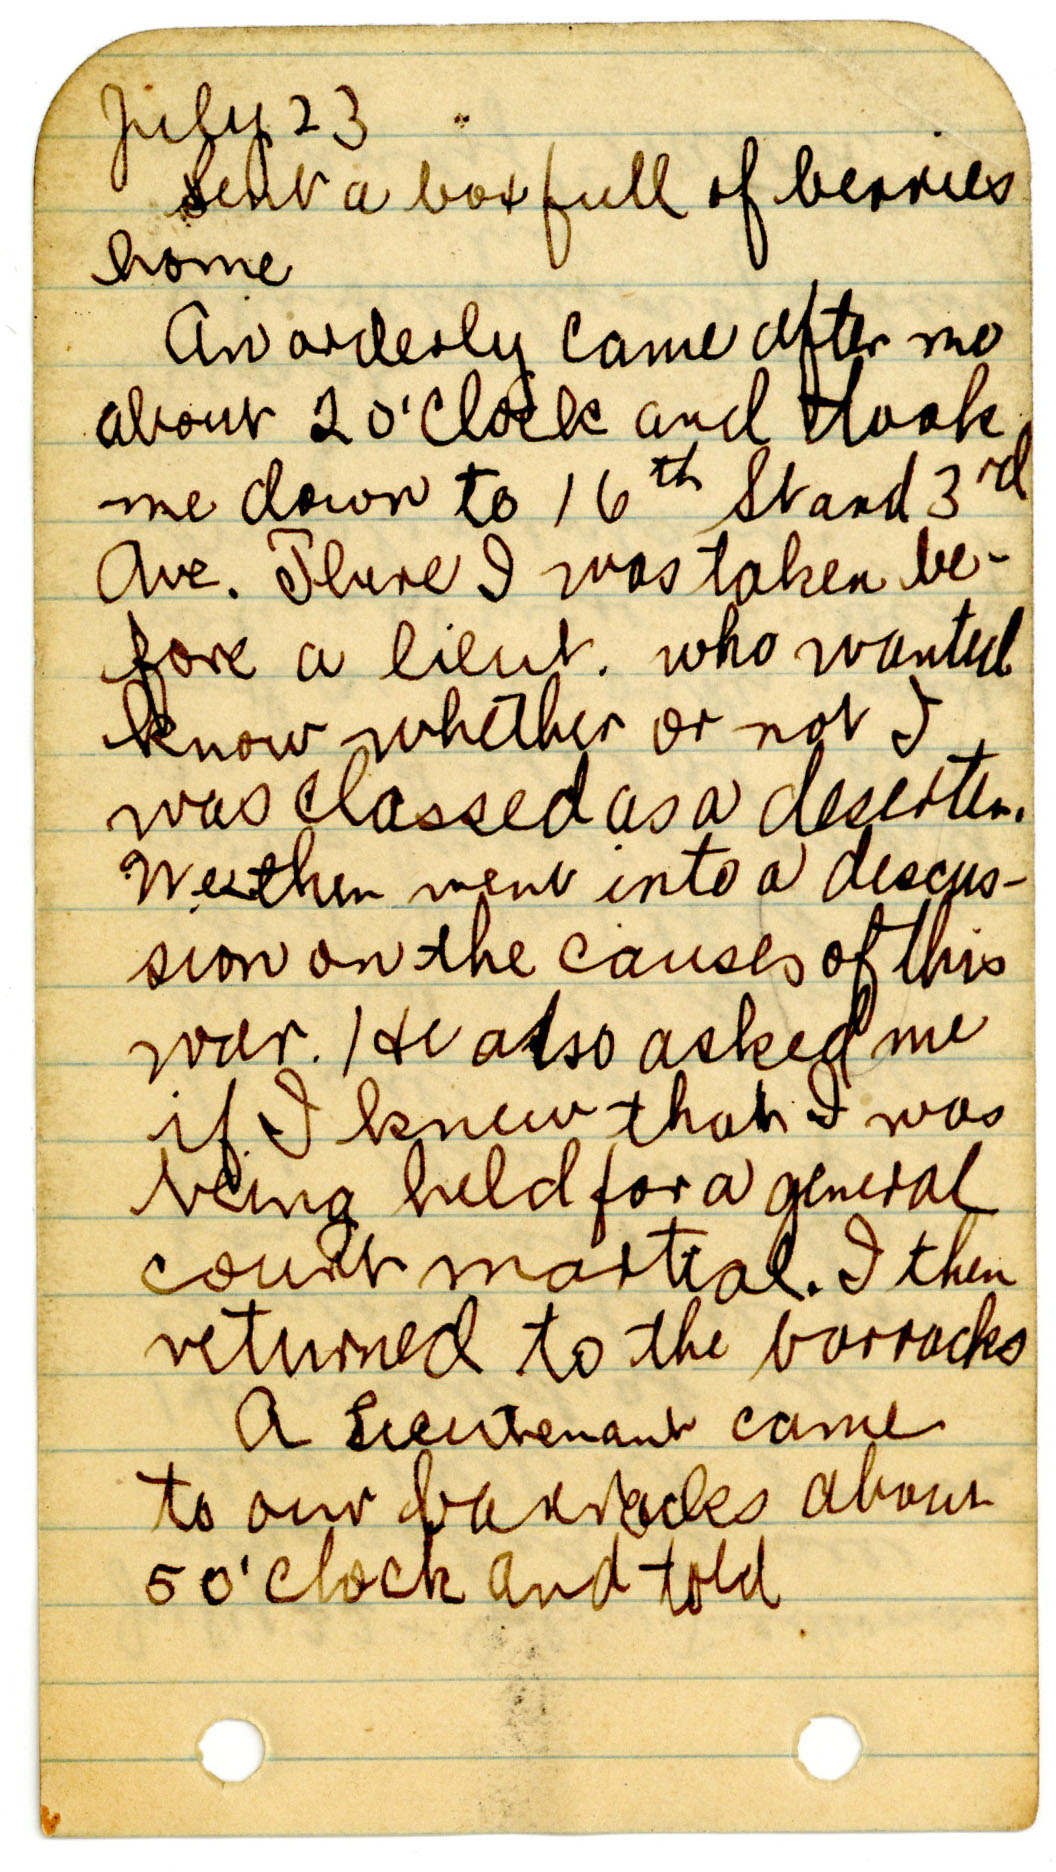 July 23
Sent a box full of berries
home
An orderly came after me
about 2 o'clock and took
me down to 16th St and 3rd
Ave. There I was taken be-
fore a lieut. who wanted
know whether or not I
was classed as a deserter.
We then went into a descus-
sion on the causes of this
war. He also asked me
if I knew that I was
being held for a general
court martial. I then
returned to the barracks
A Lieutenant came
to our barracks about
5 o'clock and told